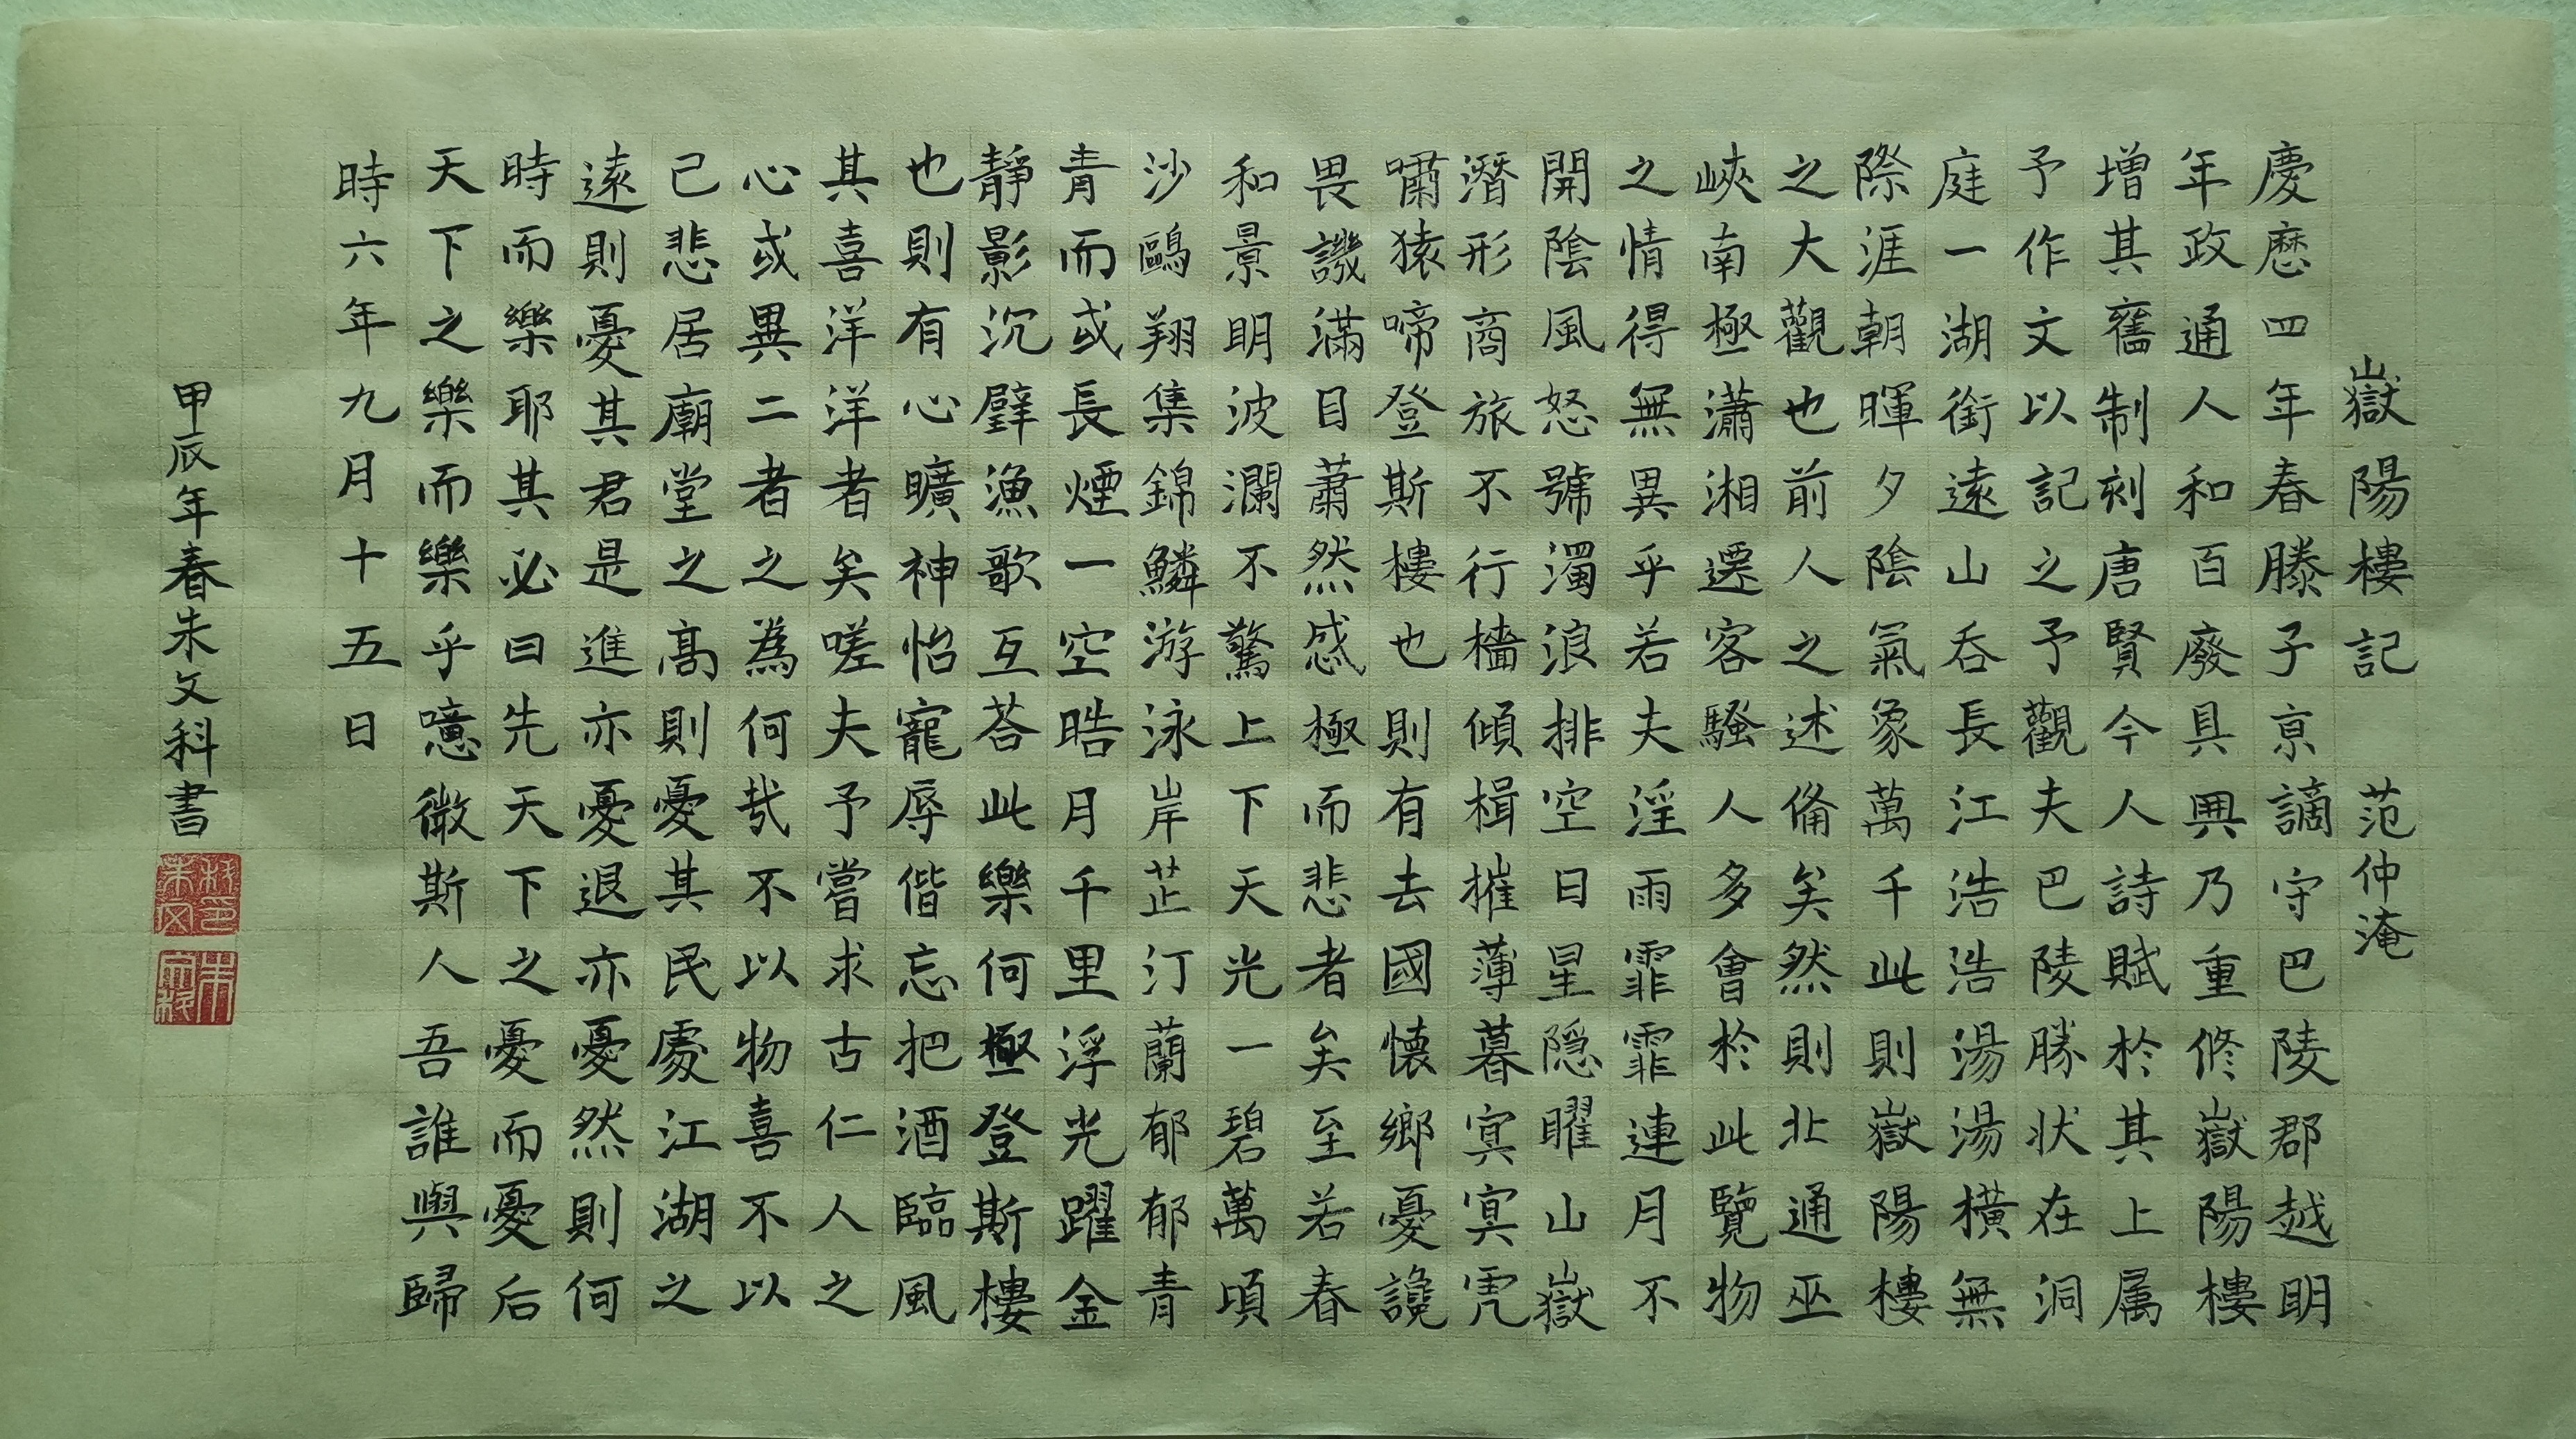 嶽陽樓記 范仲淹
慶厯四年春滕子亰謫守巴陵郡越明
年政通人和百廢具興乃重修嶽陽樓
增其舊制刻唐賢今人詩賦於其上属
予作文以記之予觀夫巴陵勝狀在洞
庭一湖銜遠山吞長江浩浩湯湯橫無
際涯朝暉夕陰氣象萬千此則嶽陽樓
之大觀也前人之述備矣然則北通巫
峽南極瀟湘遷客騷人多會於此覽物
之情得無異乎若夫淫雨霏霏連月不
開陰風怒號濁浪排空日星隱曜山嶽
潛形商旅不行檣傾楫摧薄暮冥冥虎
嘯猿啼登斯樓也則有去國懷鄉憂讒
畏譏滿目蕭然感極而悲者矣至若春
和景明波瀾不驚上下天光一碧萬頃
沙鷗翔集錦鱗游泳岸芷汀蘭郁郁青
青而或長煙一空晧月千里浮光躍金
靜影沉璧漁歌互荅此樂何極登斯樓
也則有心曠神怡寵辱偕忘把酒臨風
其喜洋洋者矣嗟夫予嘗求古仁人之
心或異二者之為何哉不以物喜不以
己悲居廟堂之高則憂其民處江湖之
遠則憂其君是進亦憂退亦憂然則何
時而樂耶其必曰先天下之憂而憂后
天下之樂而樂乎噫微斯人吾誰與歸
時六年九月十五日
甲辰年春朱文科書
朱文科印
朱文科